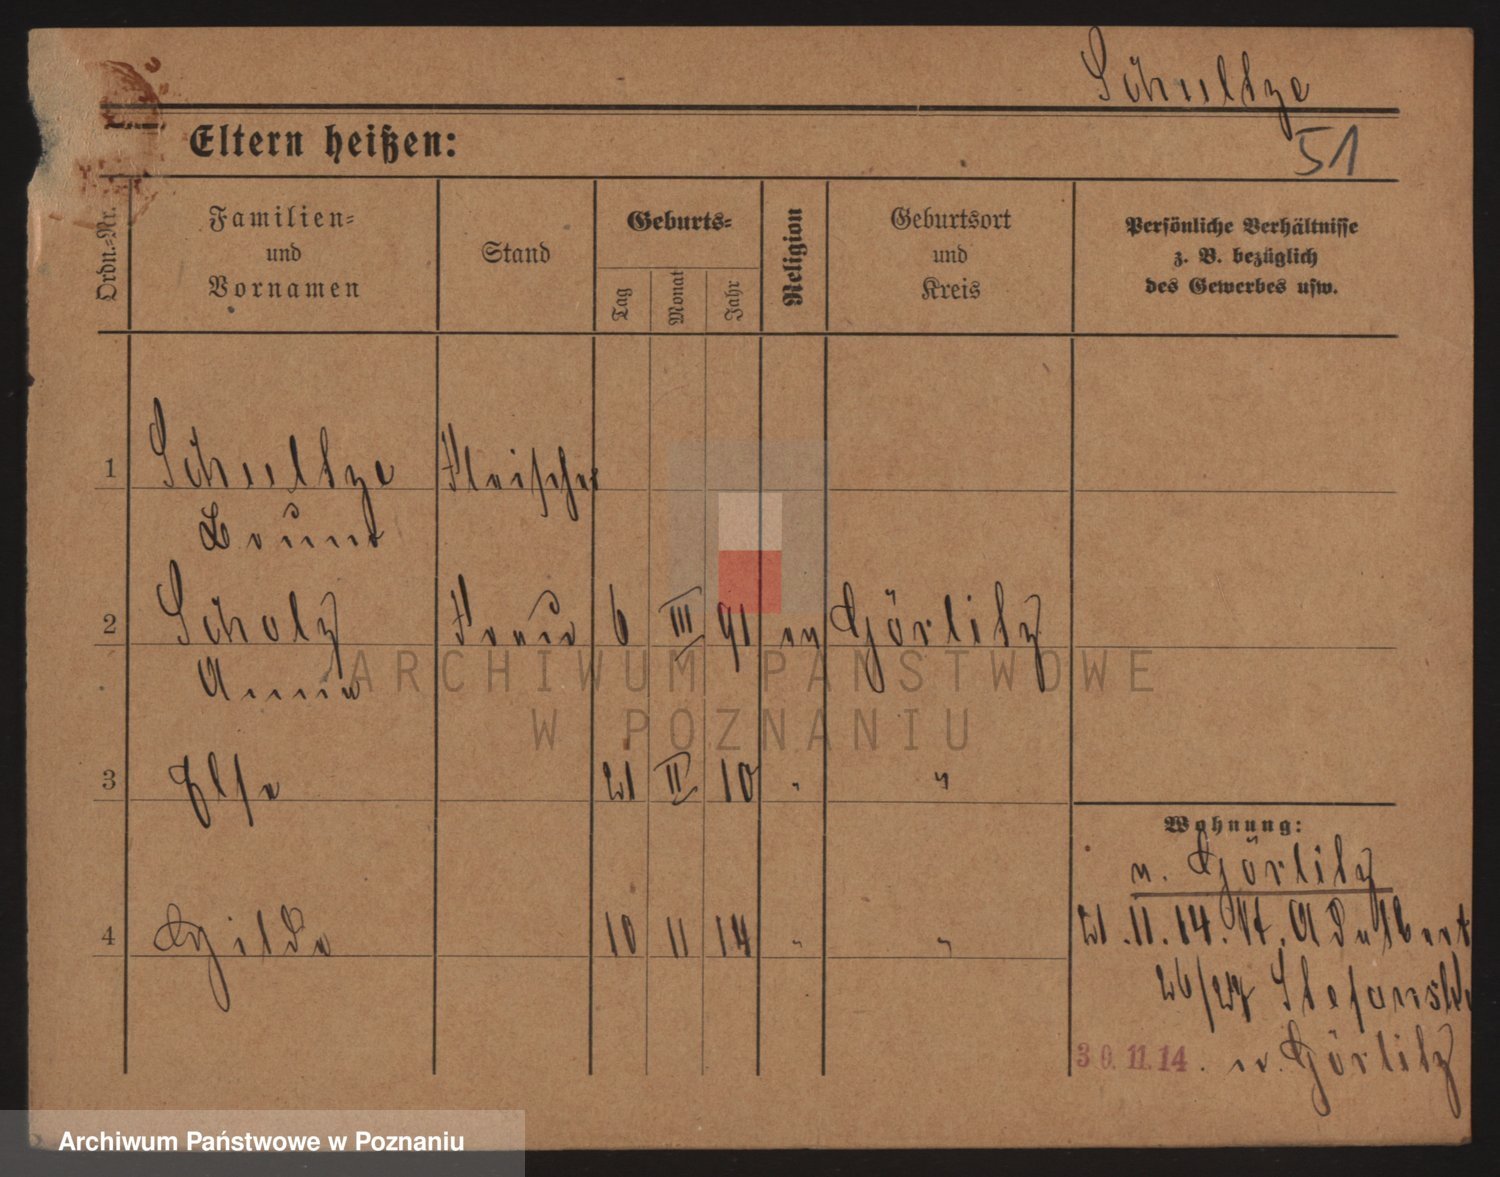 Schultze
51
Eltern heißen:
Ordn.=Nr.
Familien=
und
Vornamen
Stand
Geburts=
Tag
Monat
Jahr
Religion
Geburtsort
und
Kreis
Persönliche Verhältnisse
z. B. bezüglich
des Gewerbes usw.
1 Schultze Fleischer
Bruno
2 Scholz Frau 6 III 91 ev Görlitz
Anna
3 Else 21 II 10 " "
Wohnung:
n. Görlitz
4 Hilde 10 11 14 " "
21.11.14. St. Adalbert
26/27 Stefanski
30.11.14. n. Görlitz
ARCHIWUM PAŃSTWOWE
W POZNANIU
Archiwum Państwowe w Poznaniu